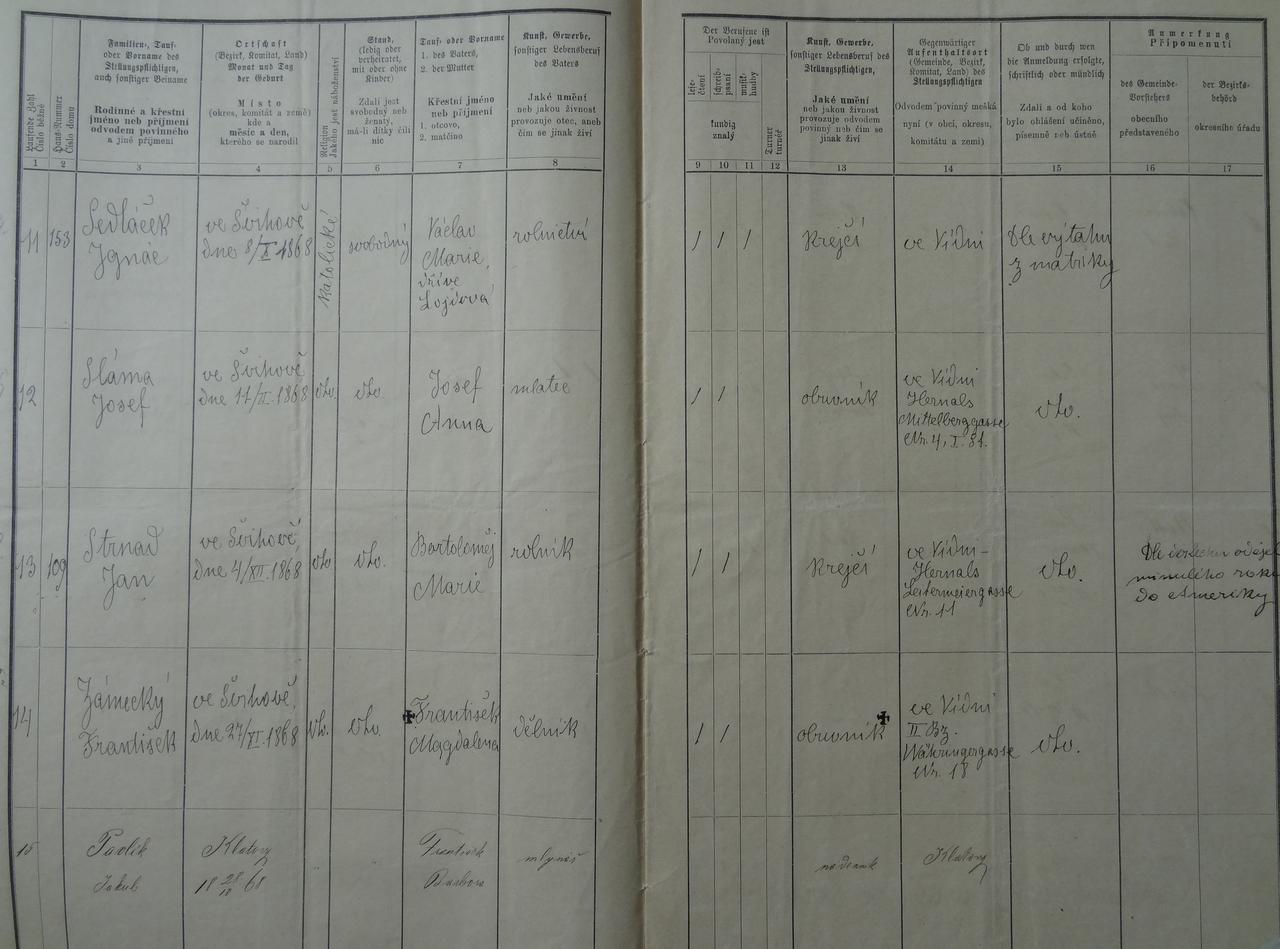 Laufende Zahl
Číslo běžné
1
Haus-Nummer
Číslo domu
2
Familien-, Tauf-
oder Vorname des
Stellungspflichtigen,
auch sonstiger Beiname
Rodinné a křestní
jméno neb příjmení
odvodem povinného
a jiné příjmení
3
Ortschaft
(Bezirk, Komitat, Land)
Monat und Tag
der Geburt
Místo
(okres, komitát a země)
kde a
měsíc a den,
kterého se narodil
4
Religion
Jakého jest náboženství
5
Stand,
(ledig oder
verheiratet,
mit oder ohne
Kinder)
Zdali jest
svobodný neb
ženatý,
má-li dítky čili
nic
6
Tauf- oder Vorname
1. des Vaters,
2. der Mutter
Křestní jméno
neb příjmení
1. otcovo,
2. matčino
7
Kunst, Gewerbe,
sonstiger Lebensberuf
des Vaters
Jaké umění
neb jakou živnost
provozuje otec, aneb
čím se jinak živí
8
Der Berufene ist
Povolaný jest
lese-
čtení
schreib-
psaní
musik-
hudby
kundig
znalý
Turner
turnéř
9 10 11 12
Kunst, Gewerbe,
sonstiger Lebensberuf des
Stellungspflichtigen,
Jaké umění
neb jakou živnost
provozuje odvodem
povinný neb čím se
jinak živí
13
Gegenwärtiger
Aufenthaltsort
(Gemeinde, Bezirk,
Komitat, Land) des
Stellungspflichtigen
Odvodem povinný mešká
nyní (v obci, okresu,
komitátu a zemi)
14
Ob und durch wen
die Anmeldung erfolgte,
schriftlich oder mündlich
Zdali a od koho
bylo ohlášení učiněno,
písemně neb ústně
15
Anmerkung
Připomenutí
des Gemeinde-
Vorstehers
obecního
představeného
16
der Bezirks-
behörd
okresního úřadu
17
11
153
Sedláček
Ignác
ve Švihově
dne 8/X 1868
katolické
svobodný
Václav
Marie,
dříve
Lojdová
rolnictví
/ / /
Krejčí
ve Vídni
Dle výtahu
z matriky
12
Sláma
Josef
ve Švihově
dne 11/II. 1868
dto.
dto.
Josef
Anna
mlatec
/ /
obuvník
ve Vídni
Hernals
Mittelberggasse
Nr. 4, I. St.
dto.
13
109
Strnad
Jan
ve Švihově,
dne 4/XII. 1868,
dto.
dto.
Bartoloměj
Marie
rolník
/ /
Krejčí
ve Vídni-
Hernals
Leitermeiergasse
Nr. 11
dto.
Dle odešel
minulého roku
do Ameriky
14
Zámecký
František
ve Švihově,
dne 27/XI. 1868
dto.
dto.
František
Magdalena
dělník
/ /
obuvník
ve Vídni
II Bz.
Währingergasse
Nr. 18
dto.
15
Pavlík
Jakub
Klatovy
18 28/10 68
František
Barbora
mlynář
Klatovy